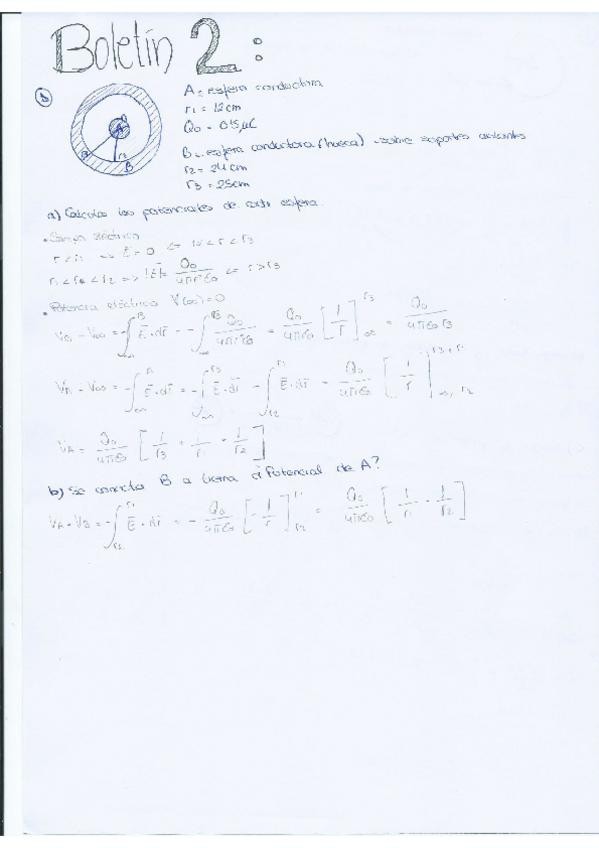 Boletín 2:
① A
B r₂ B
A = esfera conductora
r₁ = 12cm
Q₀ = 0'5μC
B = esfera conductora (hueca) sobre soportes aislantes
r₂ = 24cm
r₃ = 25cm
a) Calcular los potenciales de cada esfera.
eléctrico
r < r₁ => E = 0 <= r₂ < r < r₃
r₁ < r < r₂ => |E| = Q₀/4πr²ε₀ <= r > r₃
• Potencial eléctrico V(∞) = 0
V_B - V_∞ = -∫_∞^r₃ E·dr = -∫_∞^r₃ Q₀/4πr²ε₀ = Q₀/4πε₀ [1/r]_∞^r₃ = Q₀/4πε₀r₃
V_A - V_∞ = -∫_∞^r₁ E·dr = -∫_∞^r₃ E·dr - ∫_r₂^r₁ E·dr = Q₀/4πε₀ [1/r]_∞,r₂^r₃,r₁
V_A = Q₀/4πε₀ [1/r₃ + 1/r₁ - 1/r₂]
b) Se conecta B a tierra ¿Potencial de A?
V_A - V_B = -∫_r₂^r₁ E·dr = -Q₀/4πε₀ [-1/r]_r₂^r₁ = Q₀/4πε₀ [1/r₁ - 1/r₂]